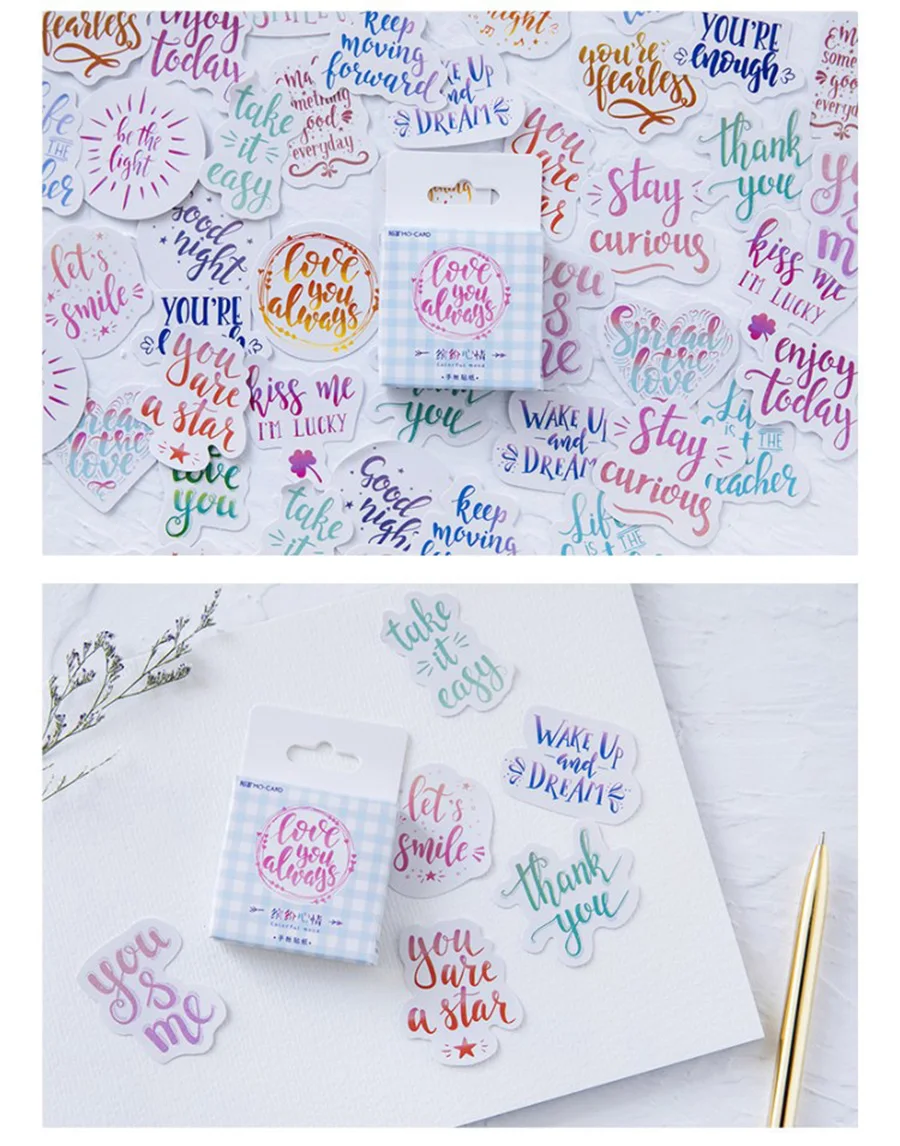 fearless
enjoy
today
keep
moving
forward
night
you're
fearless
YOU'RE
enough
some
good
everyday
be the
light
take
it
easy
something
good
everyday
WAKE UP
and
DREAM
you
are
star
stay
curious
thank
you
let's
smile
good
night
love
you
always
陌墨 MO·CARD
love
you
always
缤纷心情
Colorful mood
·手帐贴纸·
kiss me
I'M LUCKY
YOU'RE
you
are
a star
kiss me
I'M LUCKY
you
Spread
the
love
enjoy
today
WAKE UP
and
DREAM
stay
curious
Life
is THE
teacher
spread
the
love
love
you
take
it
good
night
keep
moving
Life
IS THE
take
it
easy
WAKE UP
and
DREAM
陌墨 MO·CARD
love
you
always
缤纷心情
Colorful mood
·手帐贴纸·
let's
smile
thank
you
you
are
a star
you
&
me